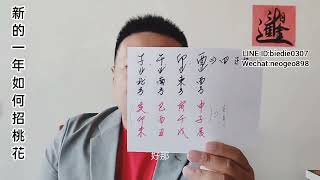 新的一年如何招桃花
LINE ID:biedie0307
Wechat:neogeo898
子
午
卯
酉
北方
南方
东方
亥卯未
巳酉丑
寅午戌
申子辰
好那